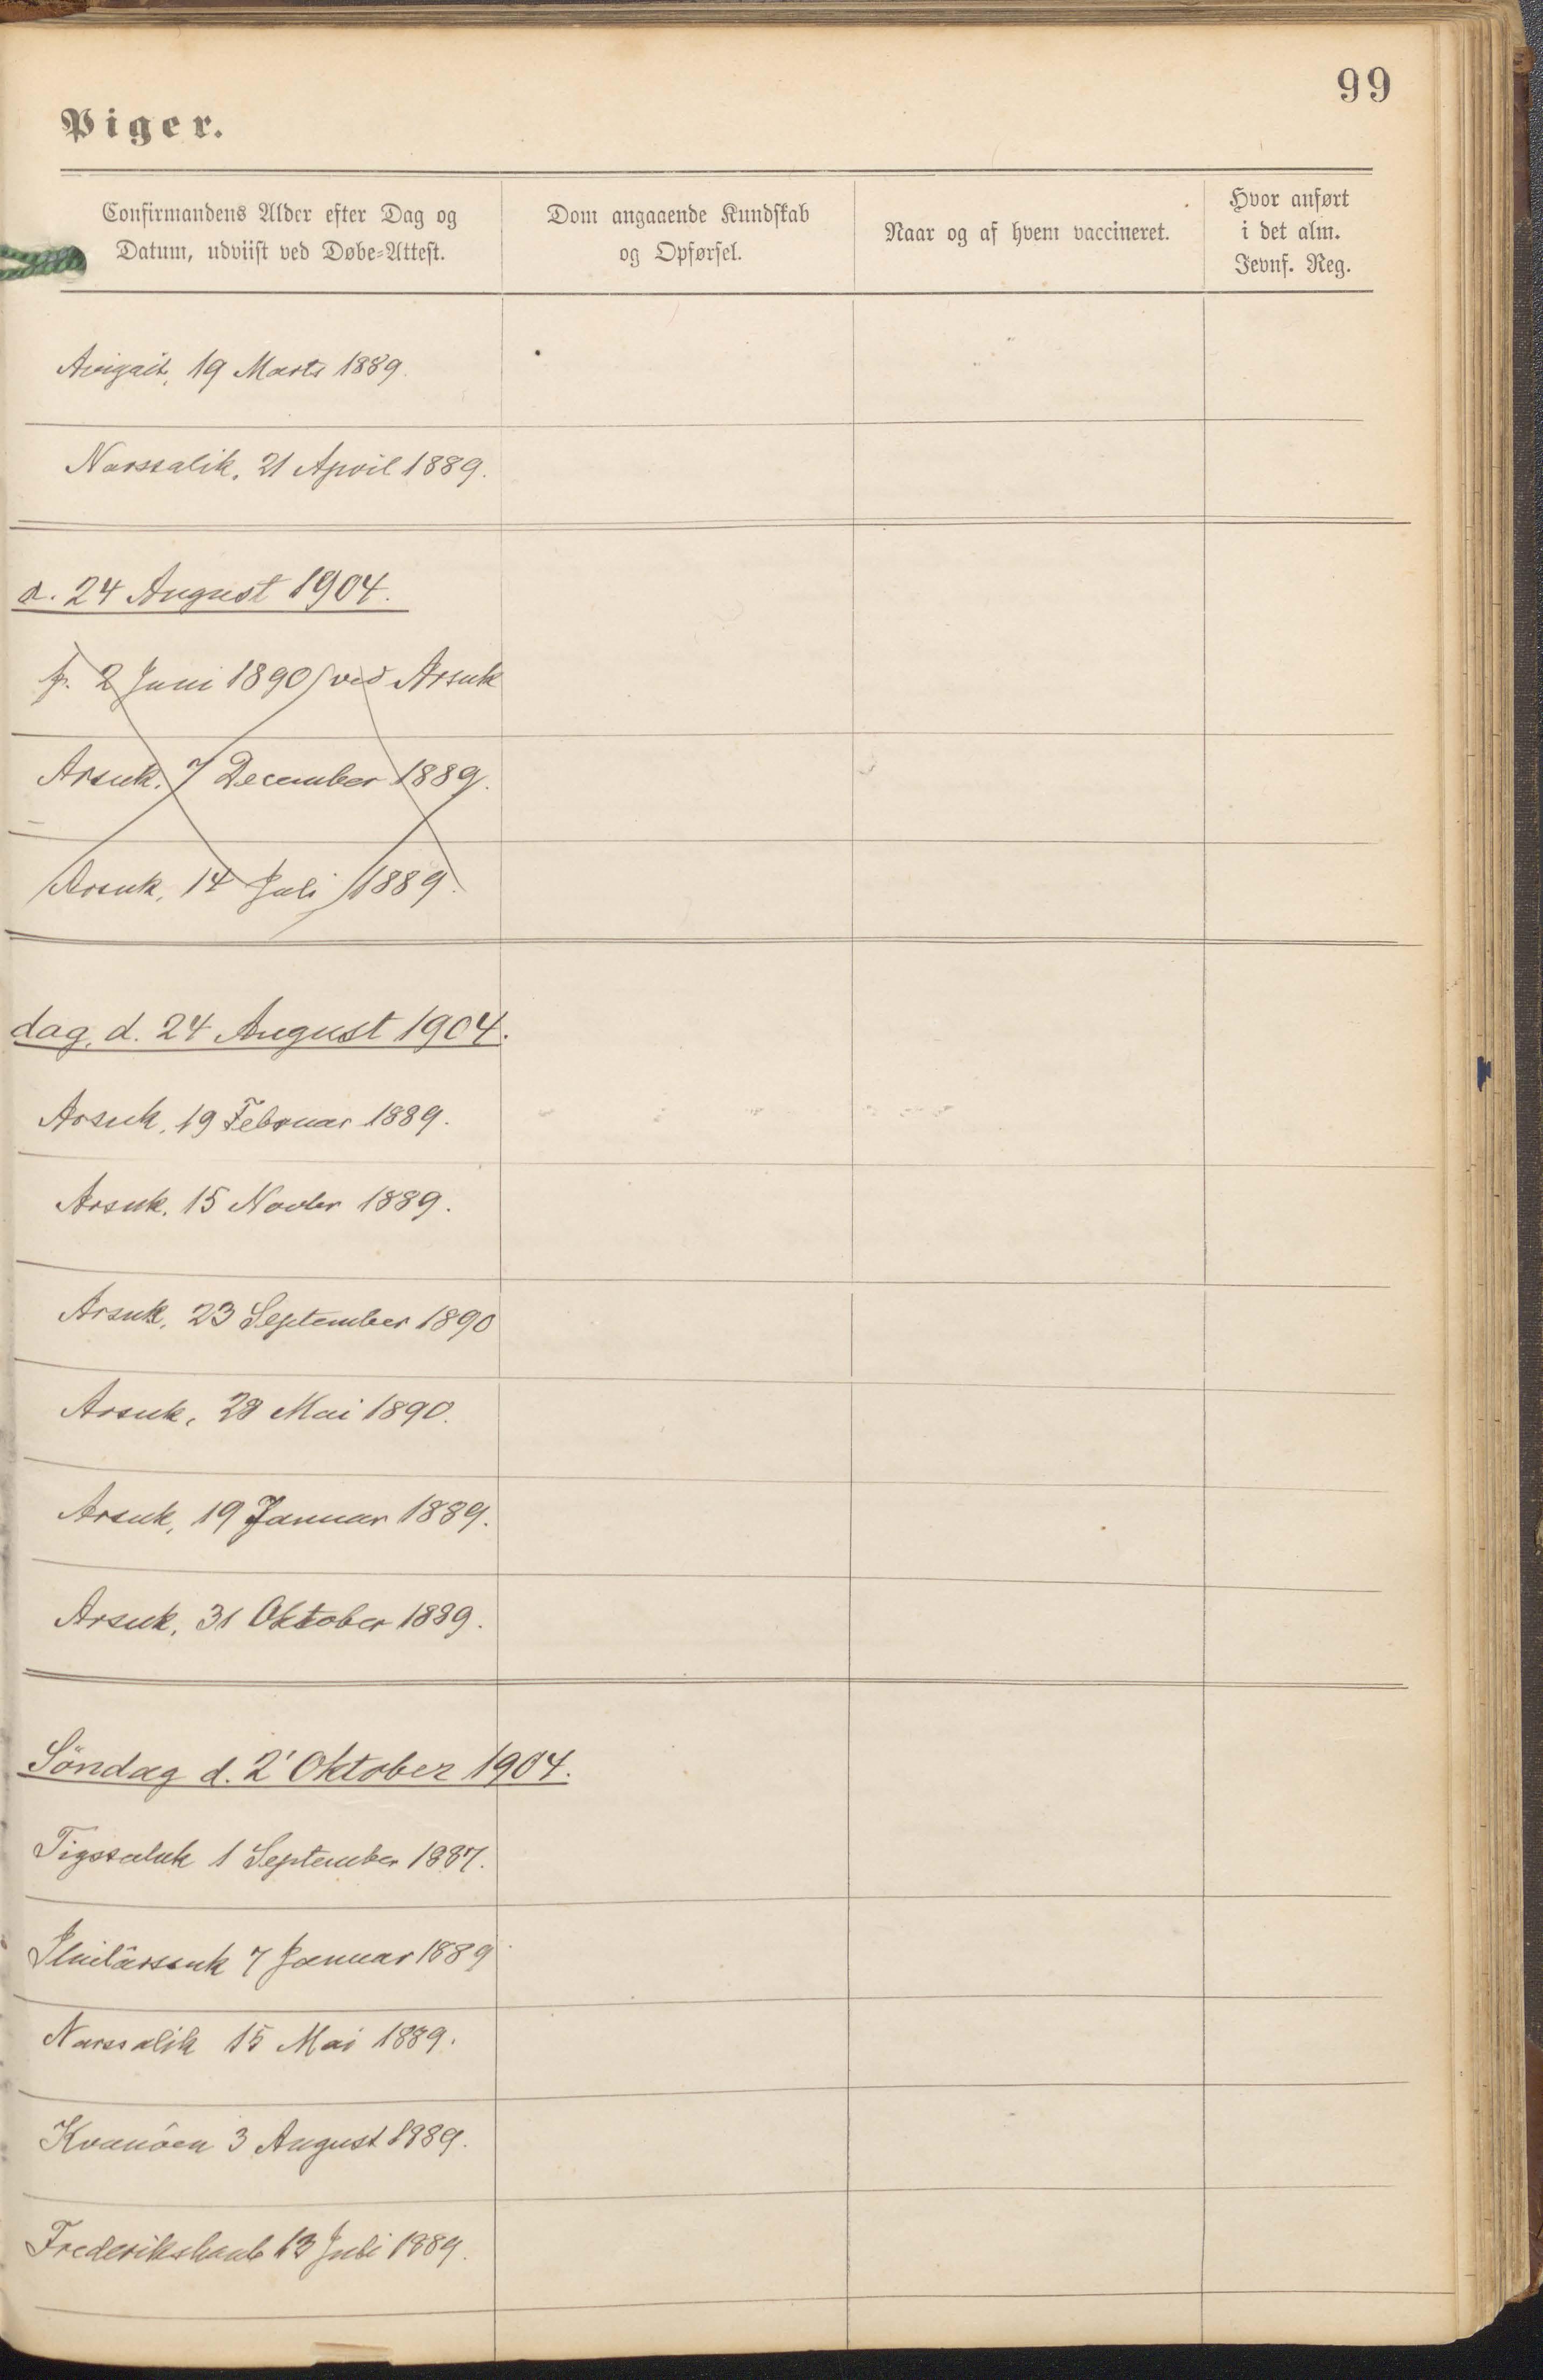 99
Piger.
Confirmandens Alder efter Dag og
Datum, udviist ved Døbe-Attest.
Dom angaaende Kundskab
og Opførsel.
Naar og af hvem vaccineret.
Hvor anført
i det alm.
Jevnf. Reg.
Avigait, 19 Marts 1889.
Narssalik, 21 April 1889.
d. 24 August 1904.
2 Juni 1890 ved Arsuk
Arsuk. 7 December 1889.
Arsuk, 14 Juli 1889.
dag, d. 24 August 1904.
Arsuk, 19 Februar 1889.
Arsuk. 15 Novbr 1889.
Arsuk, 23 September 1890
Arsuk, 28 Mai 1890.
Arsuk, 19 Januar 1889.
Arsuk, 31 Oktober 1889.
Söndag d. 2' Oktober 1904.
Tigssaluk 1 September 1887.
7 Januar 1889
Narssalik 15 Mai 1889.
Kvanöen 3 August 1889.
Frederikshaab 13 Juli 1889.